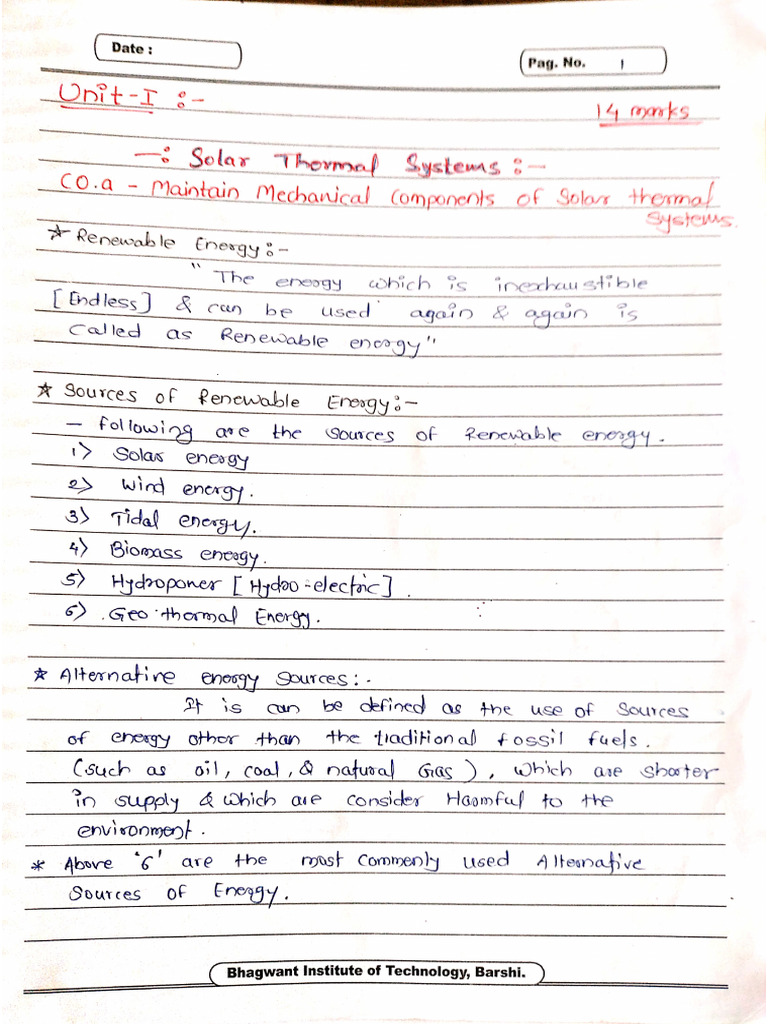 Date :
Pag. No. 1
Unit-I :-
14 marks
-: Solar Thermal Systems :-
CO.a - Maintain Mechanical Components of Solar thermal
Systems.
* Renewable Energy:-
" The energy which is inexhaustible
[Endless] & can be used again & again is
called as Renewable energy"
* Sources of Renewable Energy:-
- following are the sources of Renewable energy.
1) Solar energy
2) Wind energy.
3) Tidal energy.
4) Biomass energy.
5) Hydroponer [Hydro-electric].
6) .Geo-thermal Energy.
* Alternative energy sources:-
It is can be defined as the use of sources
of energy other than the traditional fossil fuels.
(such as oil, coal, & natural Gas), which are shorter
in supply & which are consider Harmful to the
environment.
* Above '6' are the most commenly used Alternative
Sources of Energy.
Bhagwant Institute of Technology, Barshi.